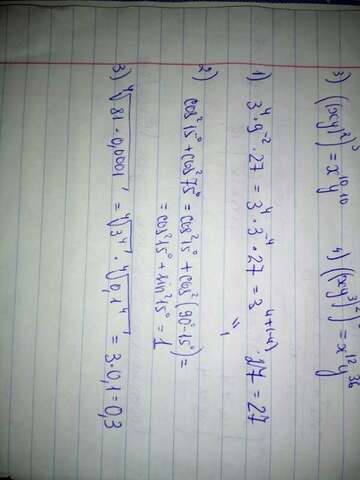 3) ((xy)²)⁵ = x¹⁰y¹⁰ 4) ((xy³)²) = x¹²y³⁶
1) 3⁴·9⁻²·27 = 3⁴·3⁻⁴·27 = 3⁴⁺⁽⁻⁴⁾·27 = 27
"1
2) cos²15° + cos²75° = cos²15° + cos²(90°-15°) =
= cos²15° + sin²15° = 1
3) ⁴√81·0,0001 = ⁴√3⁴ · ⁴√0,1⁴ = 3·0,1 = 0,3